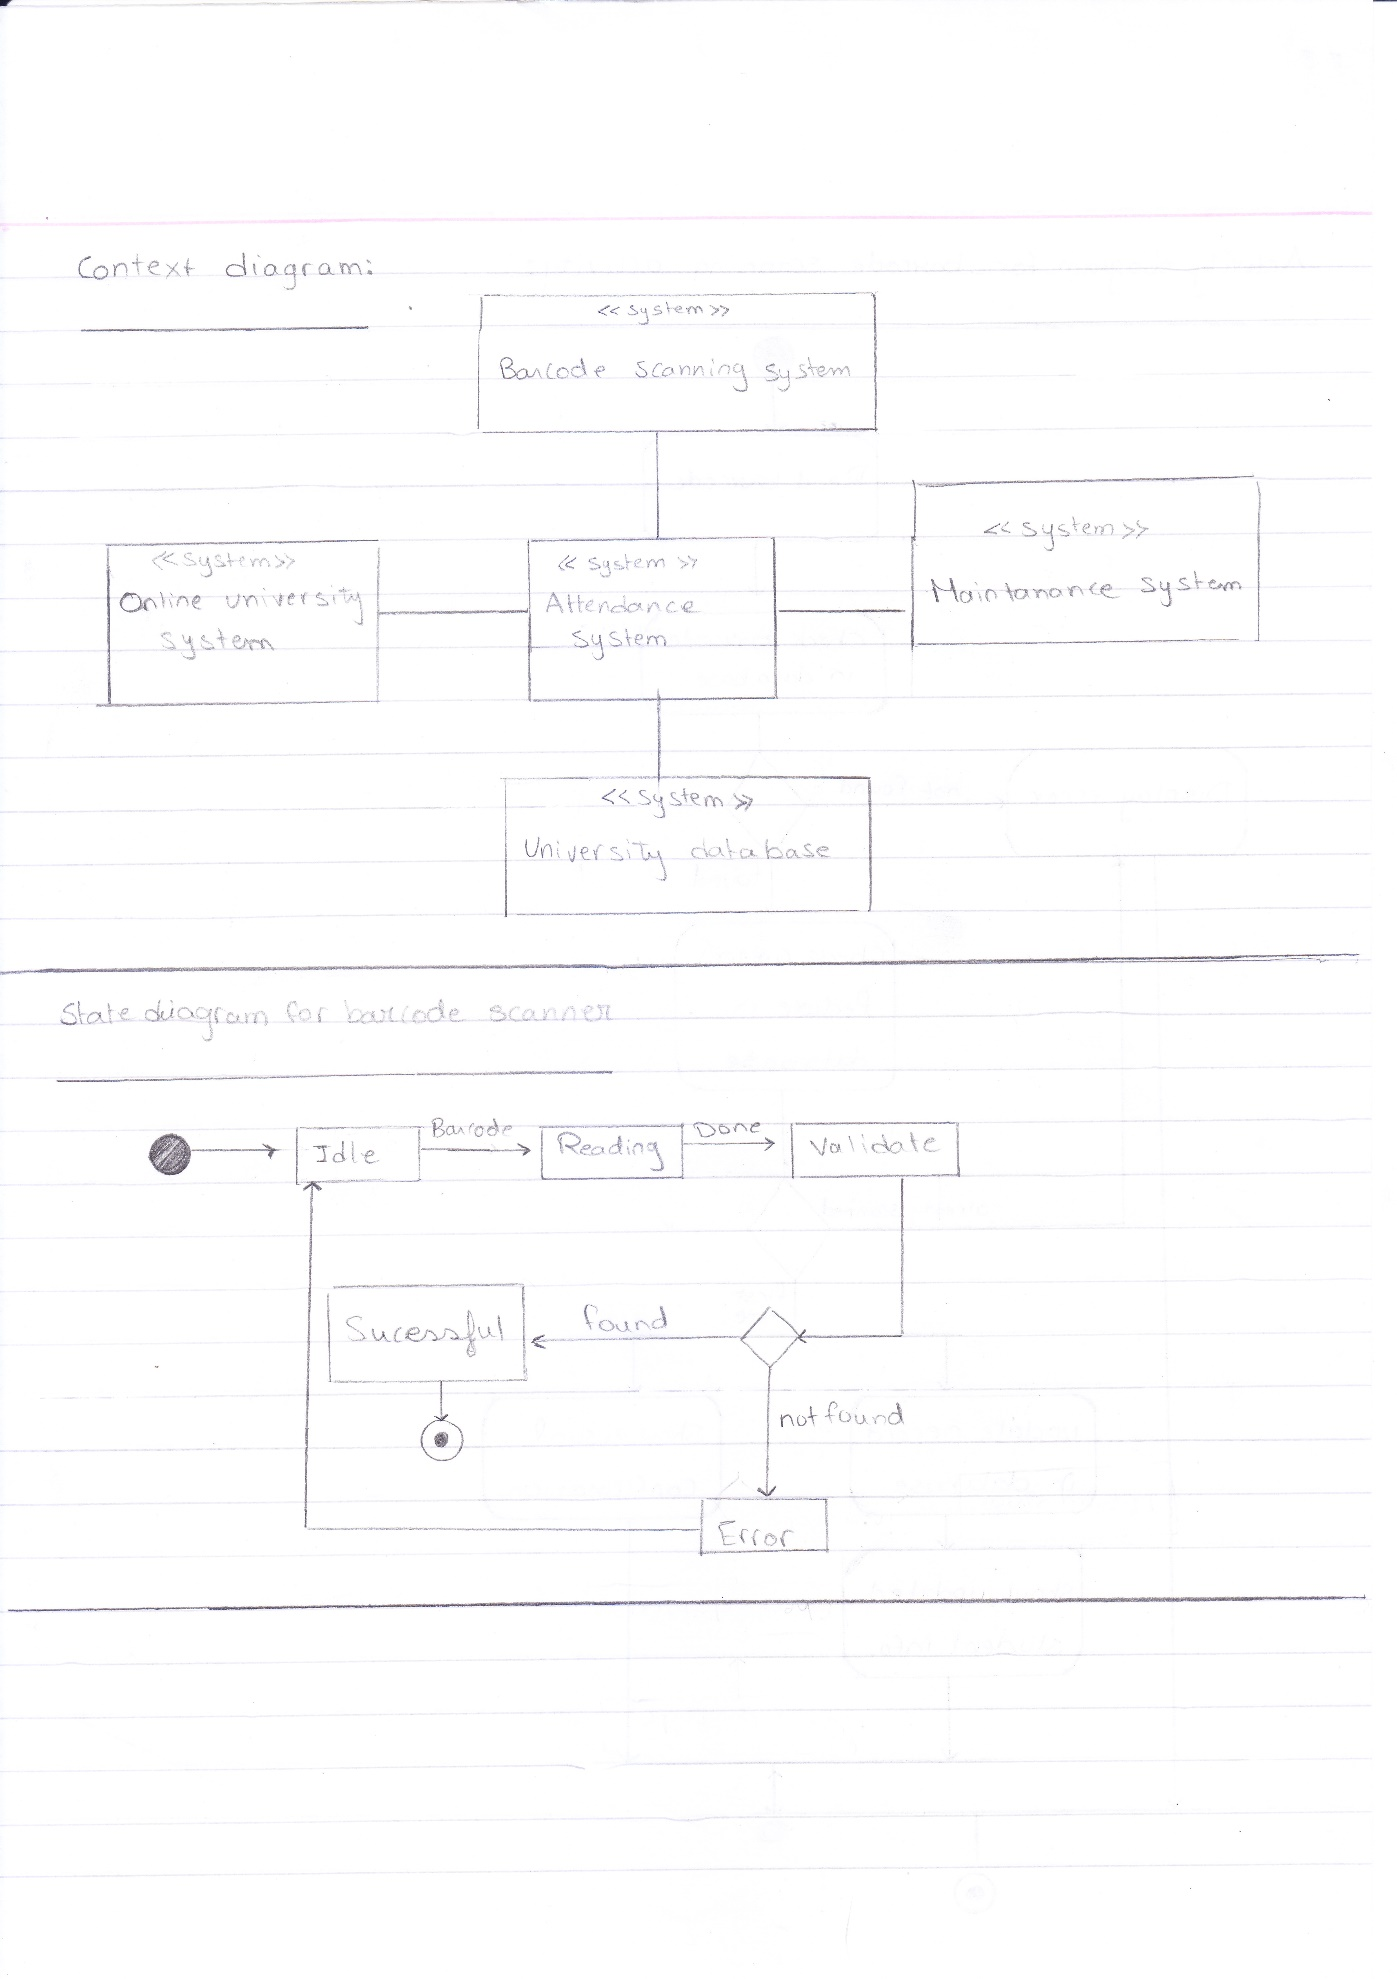 Context diagram:
<< system >>
Barcode scanning system
<< system >>
Maintanance system
<< system >>
Online university
system
<< system >>
Attendance
system
<< system >>
University database
State diagram for barcode scanner
Idle
Barcode
Reading
Done
Validate
Sucessful
found
not found
Error